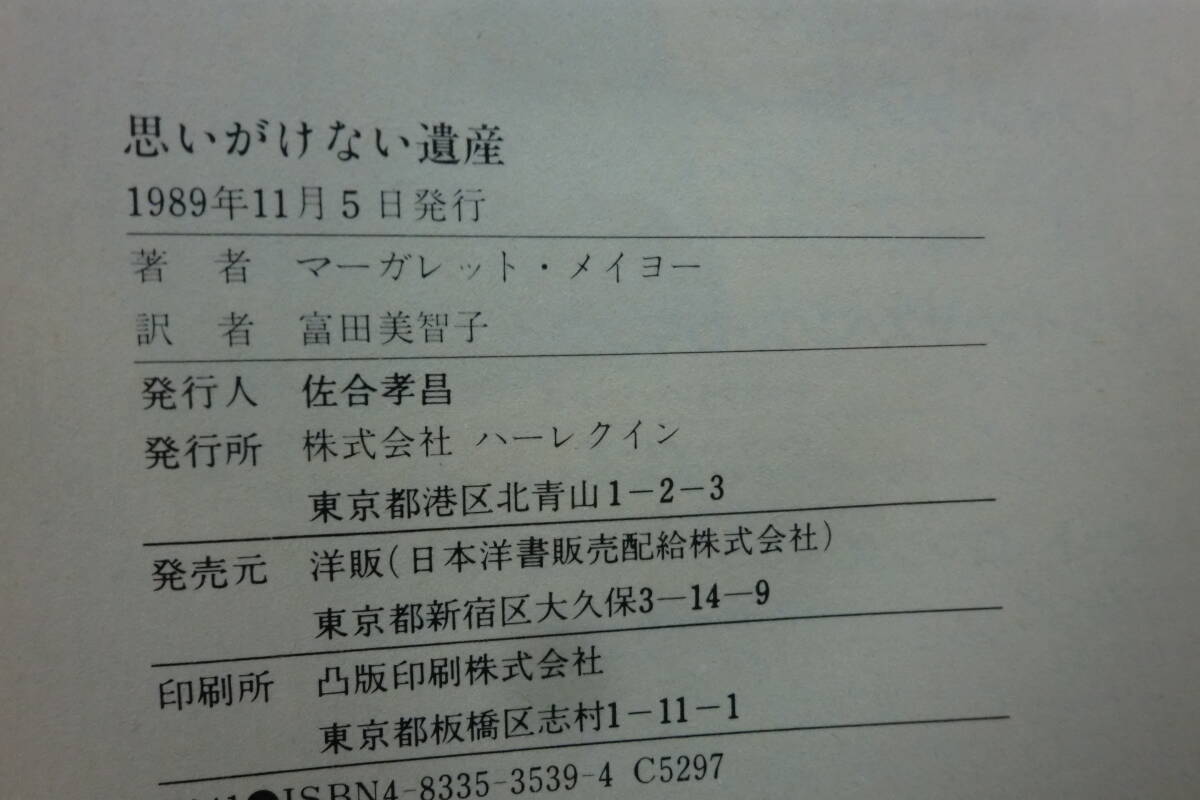 思いがけない遺産
1989年11月5日発行
著　者　マーガレット・メイヨー
訳　者　富田美智子
発行人　佐合孝昌
発行所　株式会社 ハーレクイン
東京都港区北青山1-2-3
発売元　洋販(日本洋書販売配給株式会社)
東京都新宿区大久保3-14-9
印刷所　凸版印刷株式会社
東京都板橋区志村1-11-1
●ISBN4-8335-3539-4 C5297